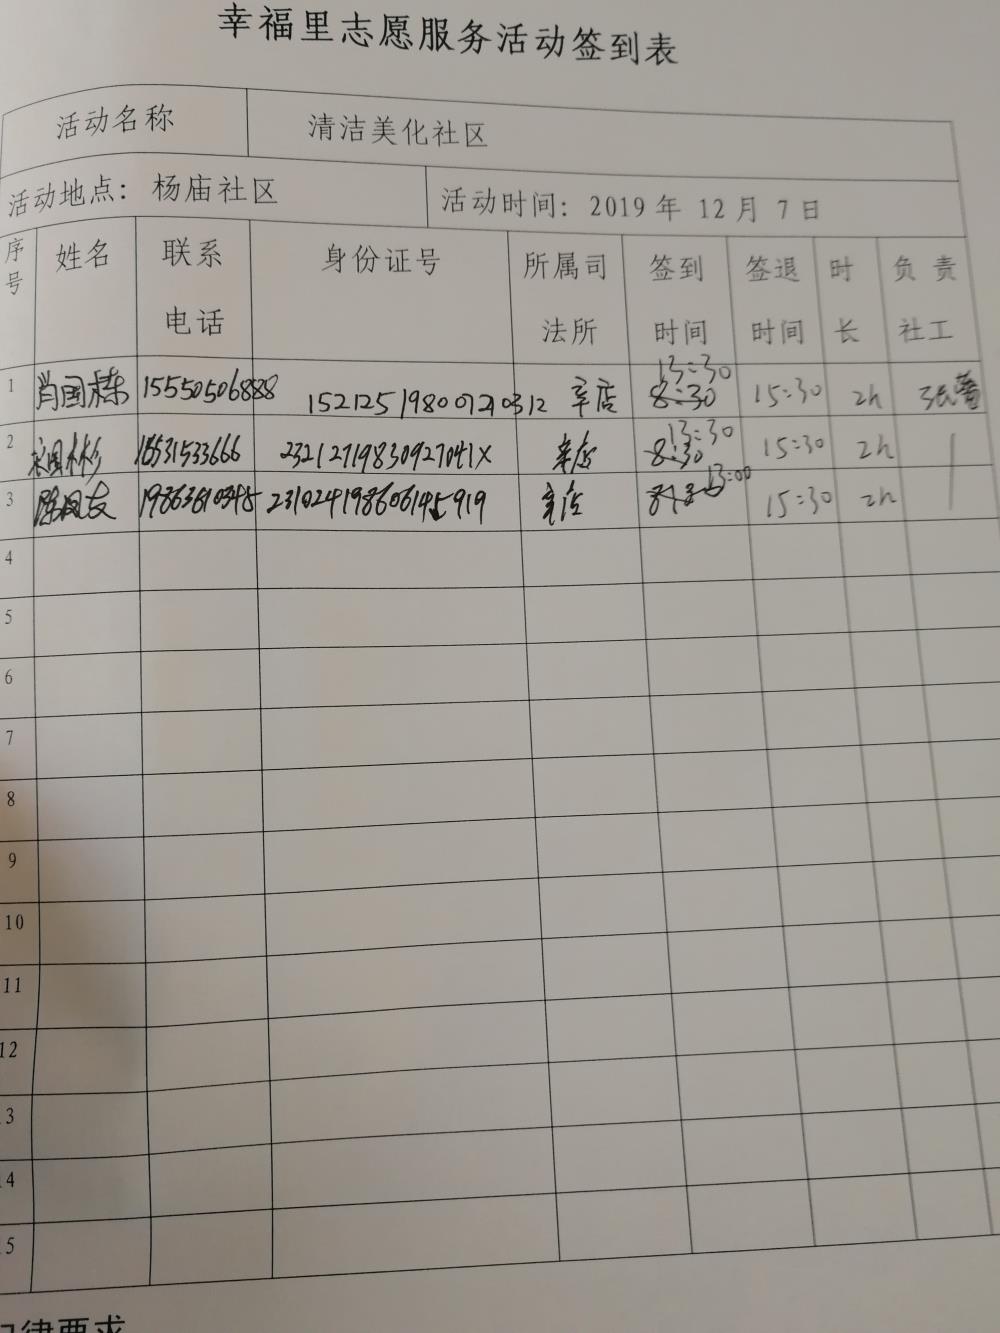 幸福里志愿服务活动签到表
活动名称 清洁美化社区
活动地点：杨庙社区 活动时间：2019年 12月 7日
序号 姓名 联系电话 身份证号 所属司法所 签到时间 签退时间 时长 负责社工
13:30
1 肖国栋 15550506888 辛店 8:30 15:30 2h
13:30
2 18531533666 23212719830927041X 辛店 8:30 15:30 2h
13:00
3 辛店 15:30 2h
4
5
6
7
8
9
10
11
12
13
14
15
律要求